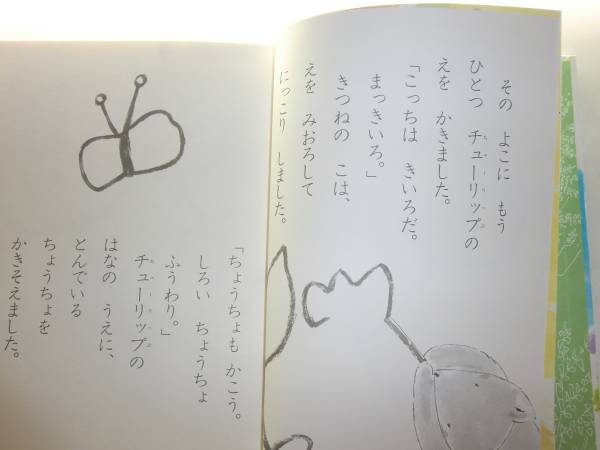 その よこに もう
ひとつ チューリップの
えを かきました。
「こっちは きいろだ。
まっきいろ。」
きつねの こは、
えを みおろして
にっこり しました。
「ちょうちょも かこう。
しろい ちょうちょ
ふうわり。」
チューリップの
はなの うえに、
とんでいる
ちょうちょを
かきそえました。